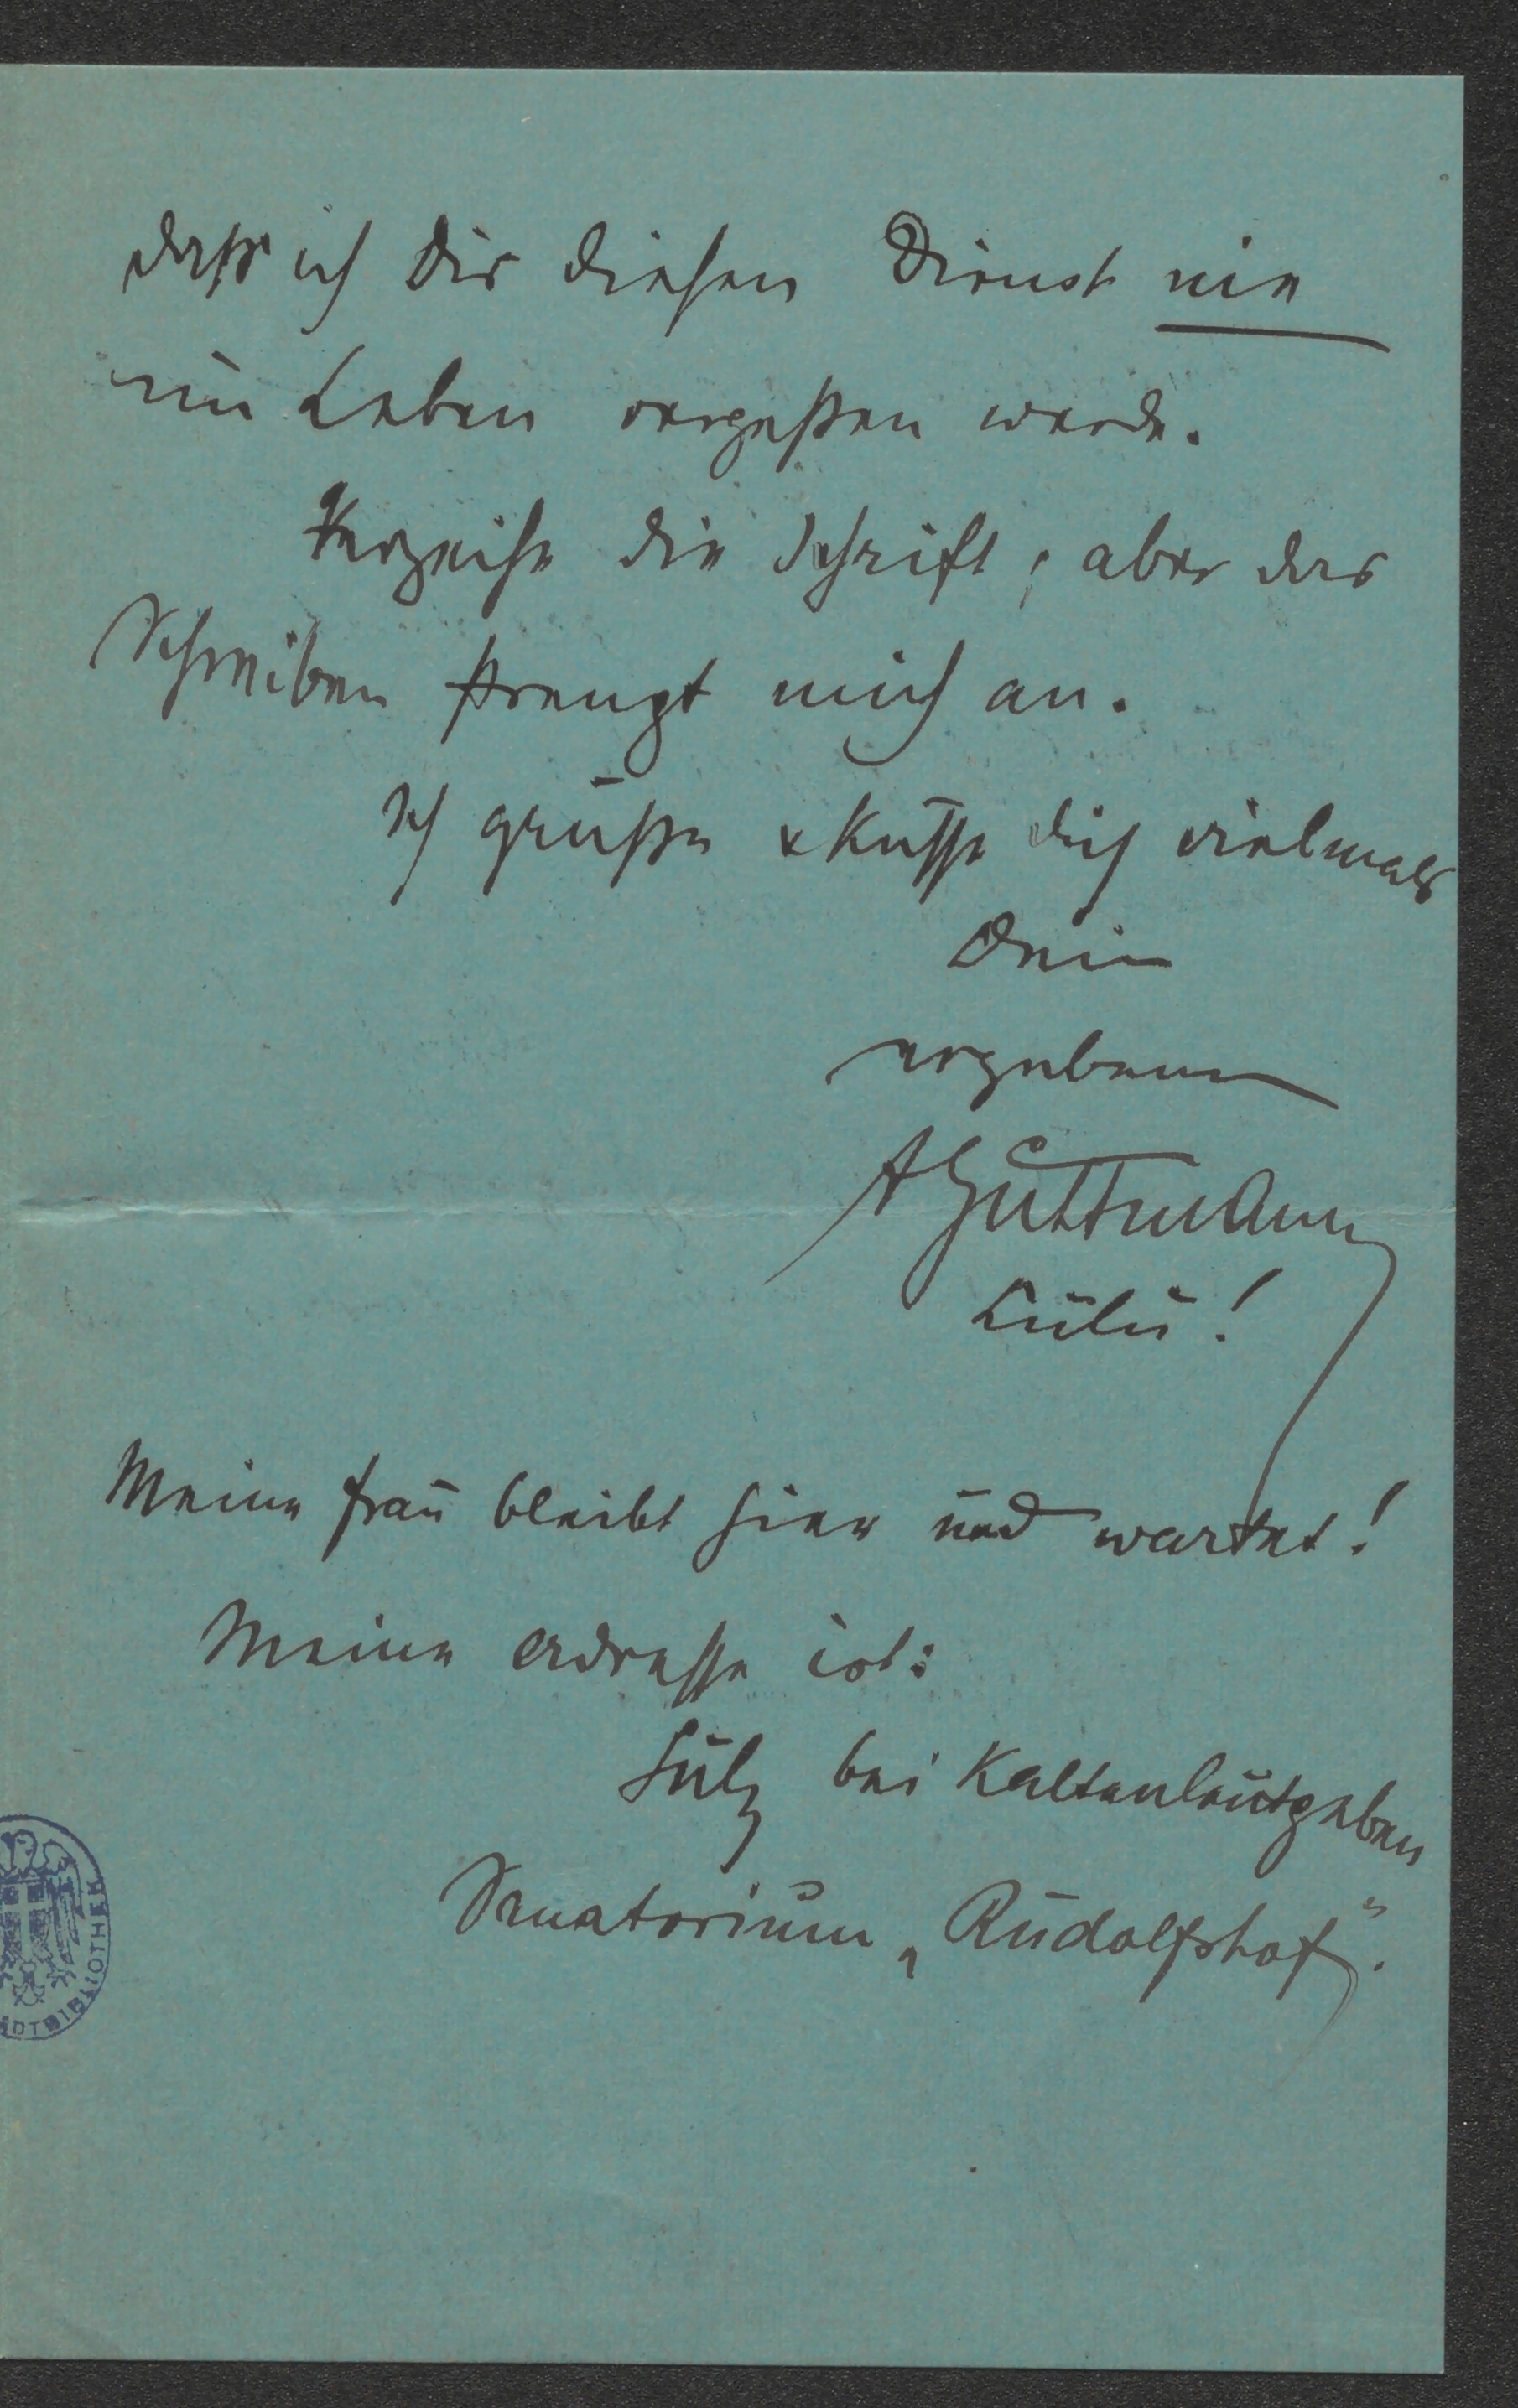 daß ich Dir diesen Dienst nie
im Leben vergeßen werde.
Verzeihe die Schrift, aber das
Schreiben strengt mich an.
Ich grüße & küsse dich vielmals
Dein
ergebener
A Guttmann
Lulu!
Meine Frau bleibt hier und wartet!
Meine Adresse ist:
Sulz bei Kaltenleutgeben
Sanatorium „Rudolfshof".
DTBIBLIOTHEK